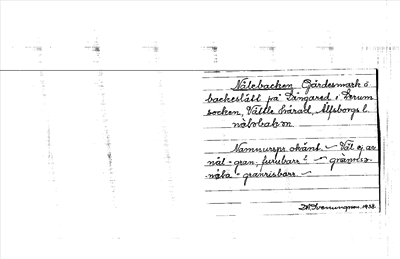 Nålebacken Gårdesmark o
backeslått på Långared i Lerum
socken, Vättle härad, Älfsborgs l.
nåləbakən
Namnurspr. okänt. — Väl ej av
nål = gran, furubarr? —
= granrisbarr —
1938.